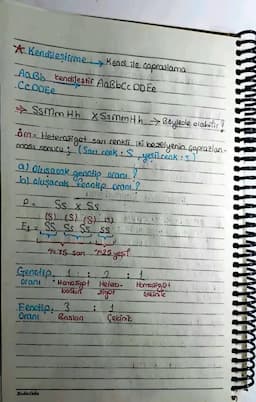 * Kendileştirme → Kendi ile çaprazlama
AaBb kendileştir AaBbCcDDEe
CcDDEe
→ SsMmHh x SsmmHh → Böylede olabilir?
Örn= Heterozigot sarı renkli iki bezelyenin çaprazlan-
ması sonucu; (Sarı renk: S, yeşil renk: s)
a) Oluşacak genotip oranı?
b) oluşacak Fenotip oranı?
P = Ss x Ss
(S) (s) (S) (s)
F1 = SS Ss Ss ss
%75 sarı %25 yeşil
Genotip 1 : 2 : 1
oranı Homozigot Hetero- Homozigot
baskın zigot çekinik
Fenotip 3 : 1
oranı Baskın Çekinik